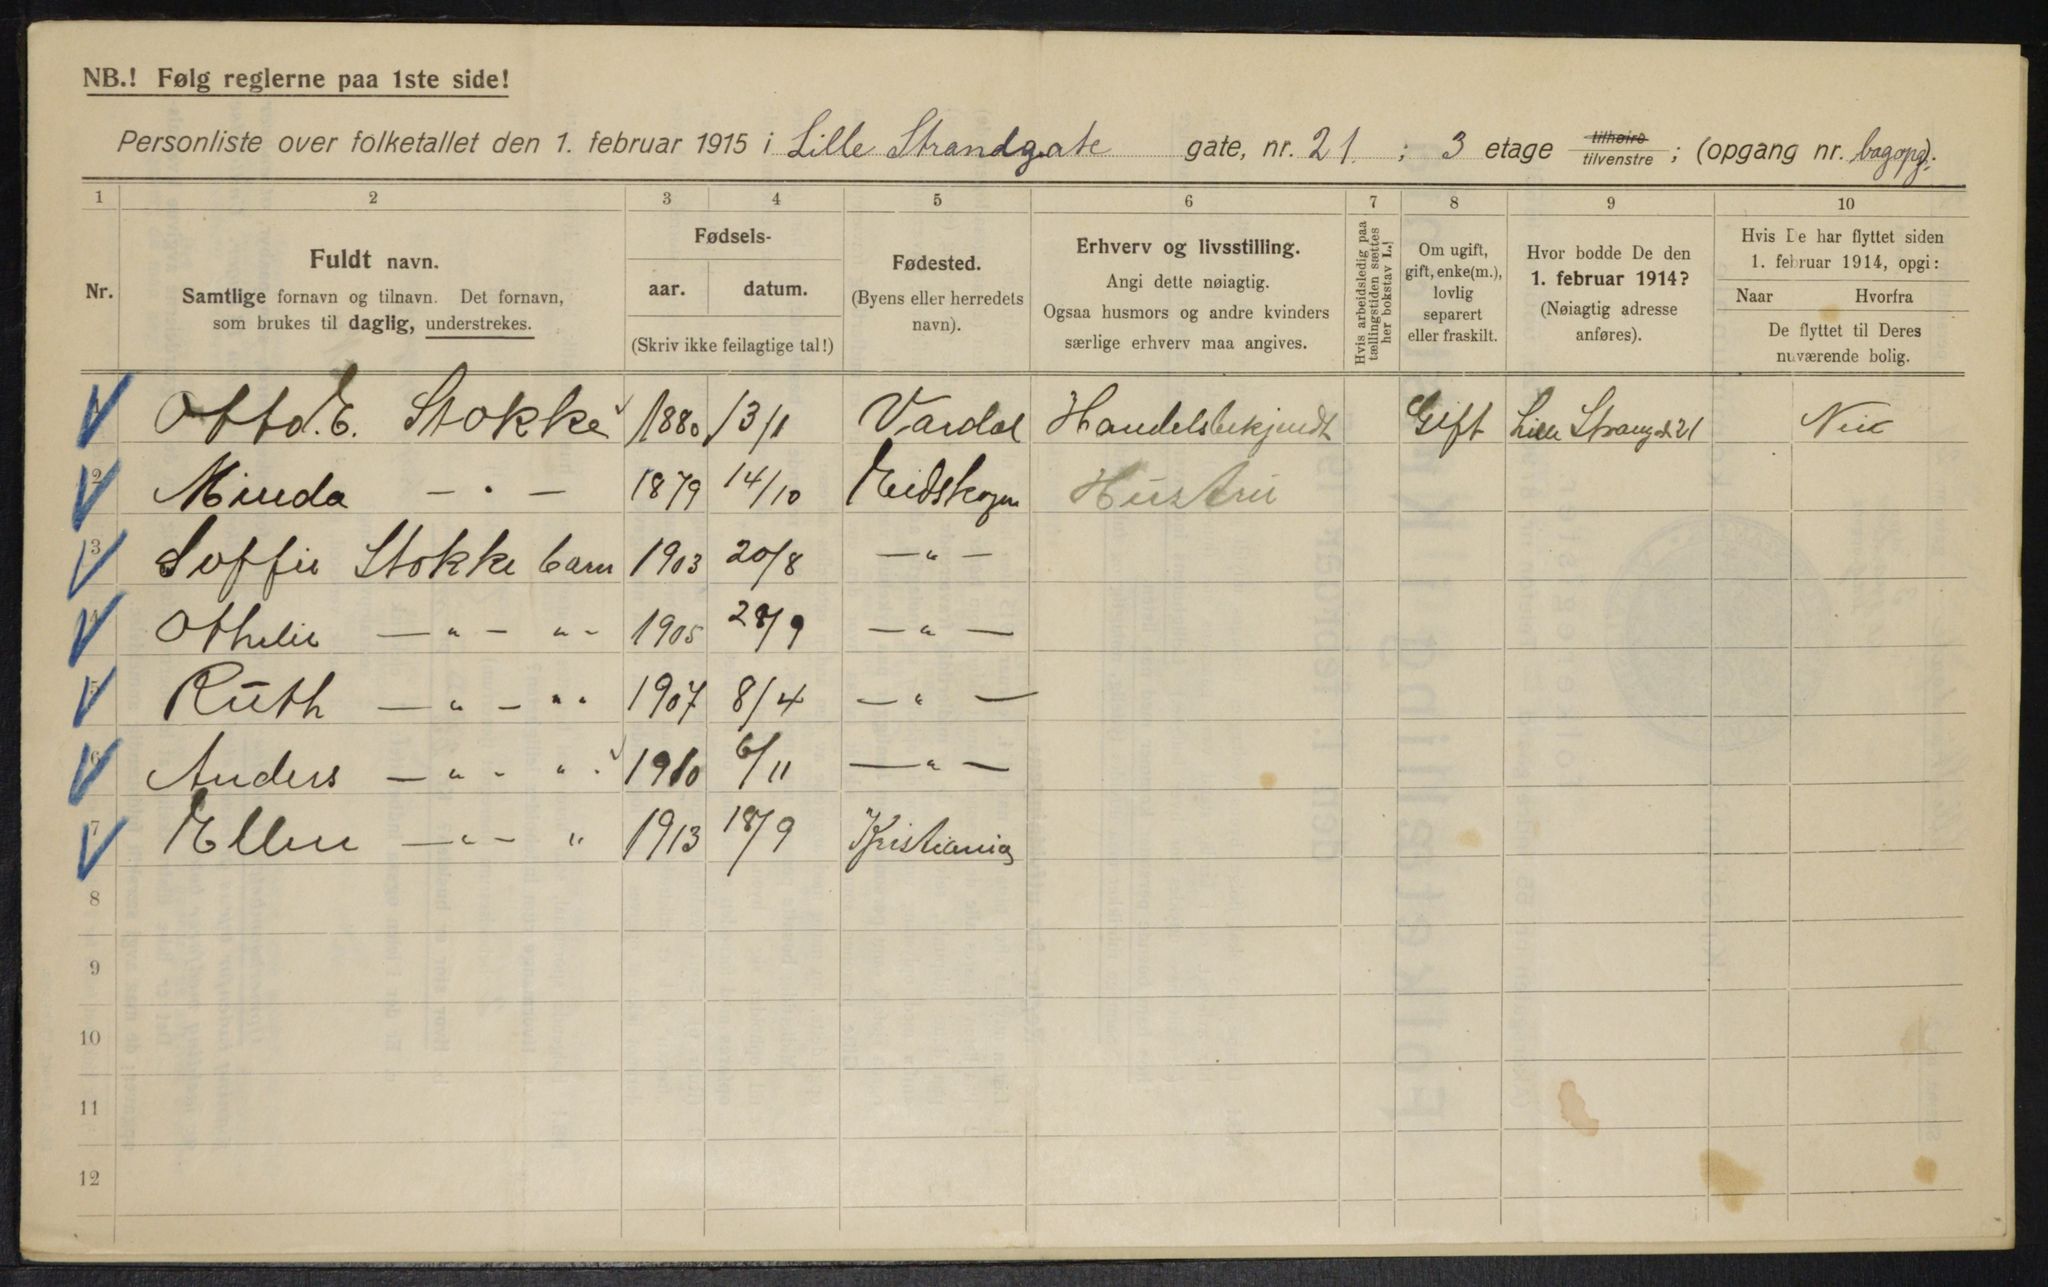 NB.! Følg reglerne paa 1ste side!
Personliste over folketallet den 1. februar 1915 i Lille Strandgate gate, nr. 21 ; 3 etage tilhøire tilvenstre ; (opgang nr. bagopg).
1 2 3 4 5 6 7 8 9 10
Nr.
Fuldt navn.
Samtlige fornavn og tilnavn. Det fornavn,
som brukes til daglig, understrekes.
Fødsels-
aar. datum.
(Skriv ikke feilagtige tal!)
Fødested.
(Byens eller herredets
navn).
Erhverv og livsstilling.
Angi dette nøiagtig.
Ogsaa husmors og andre kvinders
særlige erhverv maa angives.
Hvis arbeidsledig paa
tællingstiden sættes
her bokstav L.!
Om ugift,
gift, enke(m.),
lovlig
separert
eller fraskilt.
Hvor bodde De den
1. februar 1914?
(Nøiagtig adresse
anføres).
Hvis De har flyttet siden
1. februar 1914, opgi:
Naar Hvorfra
De flyttet til Deres
nuværende bolig.
1 Otto. E. Stokke 1880 13/1 Vardal Handelsbetjendt Gift Lille Strangd. 21 Nei
2 Minda — . — 1879 14/10 Eidskogen Hustru
3 Soffie Stokke barn 1903 20/8 — " —
4 Othelie — " — " - 1905 28/9 — " —
5 Ruth — " — " 1907 8/4 — " —
6 Anders — " - " - 1910 6/11 — " —
7 Ellen — " — " 1913 18/9 Kristiania
8
9
10
11
12